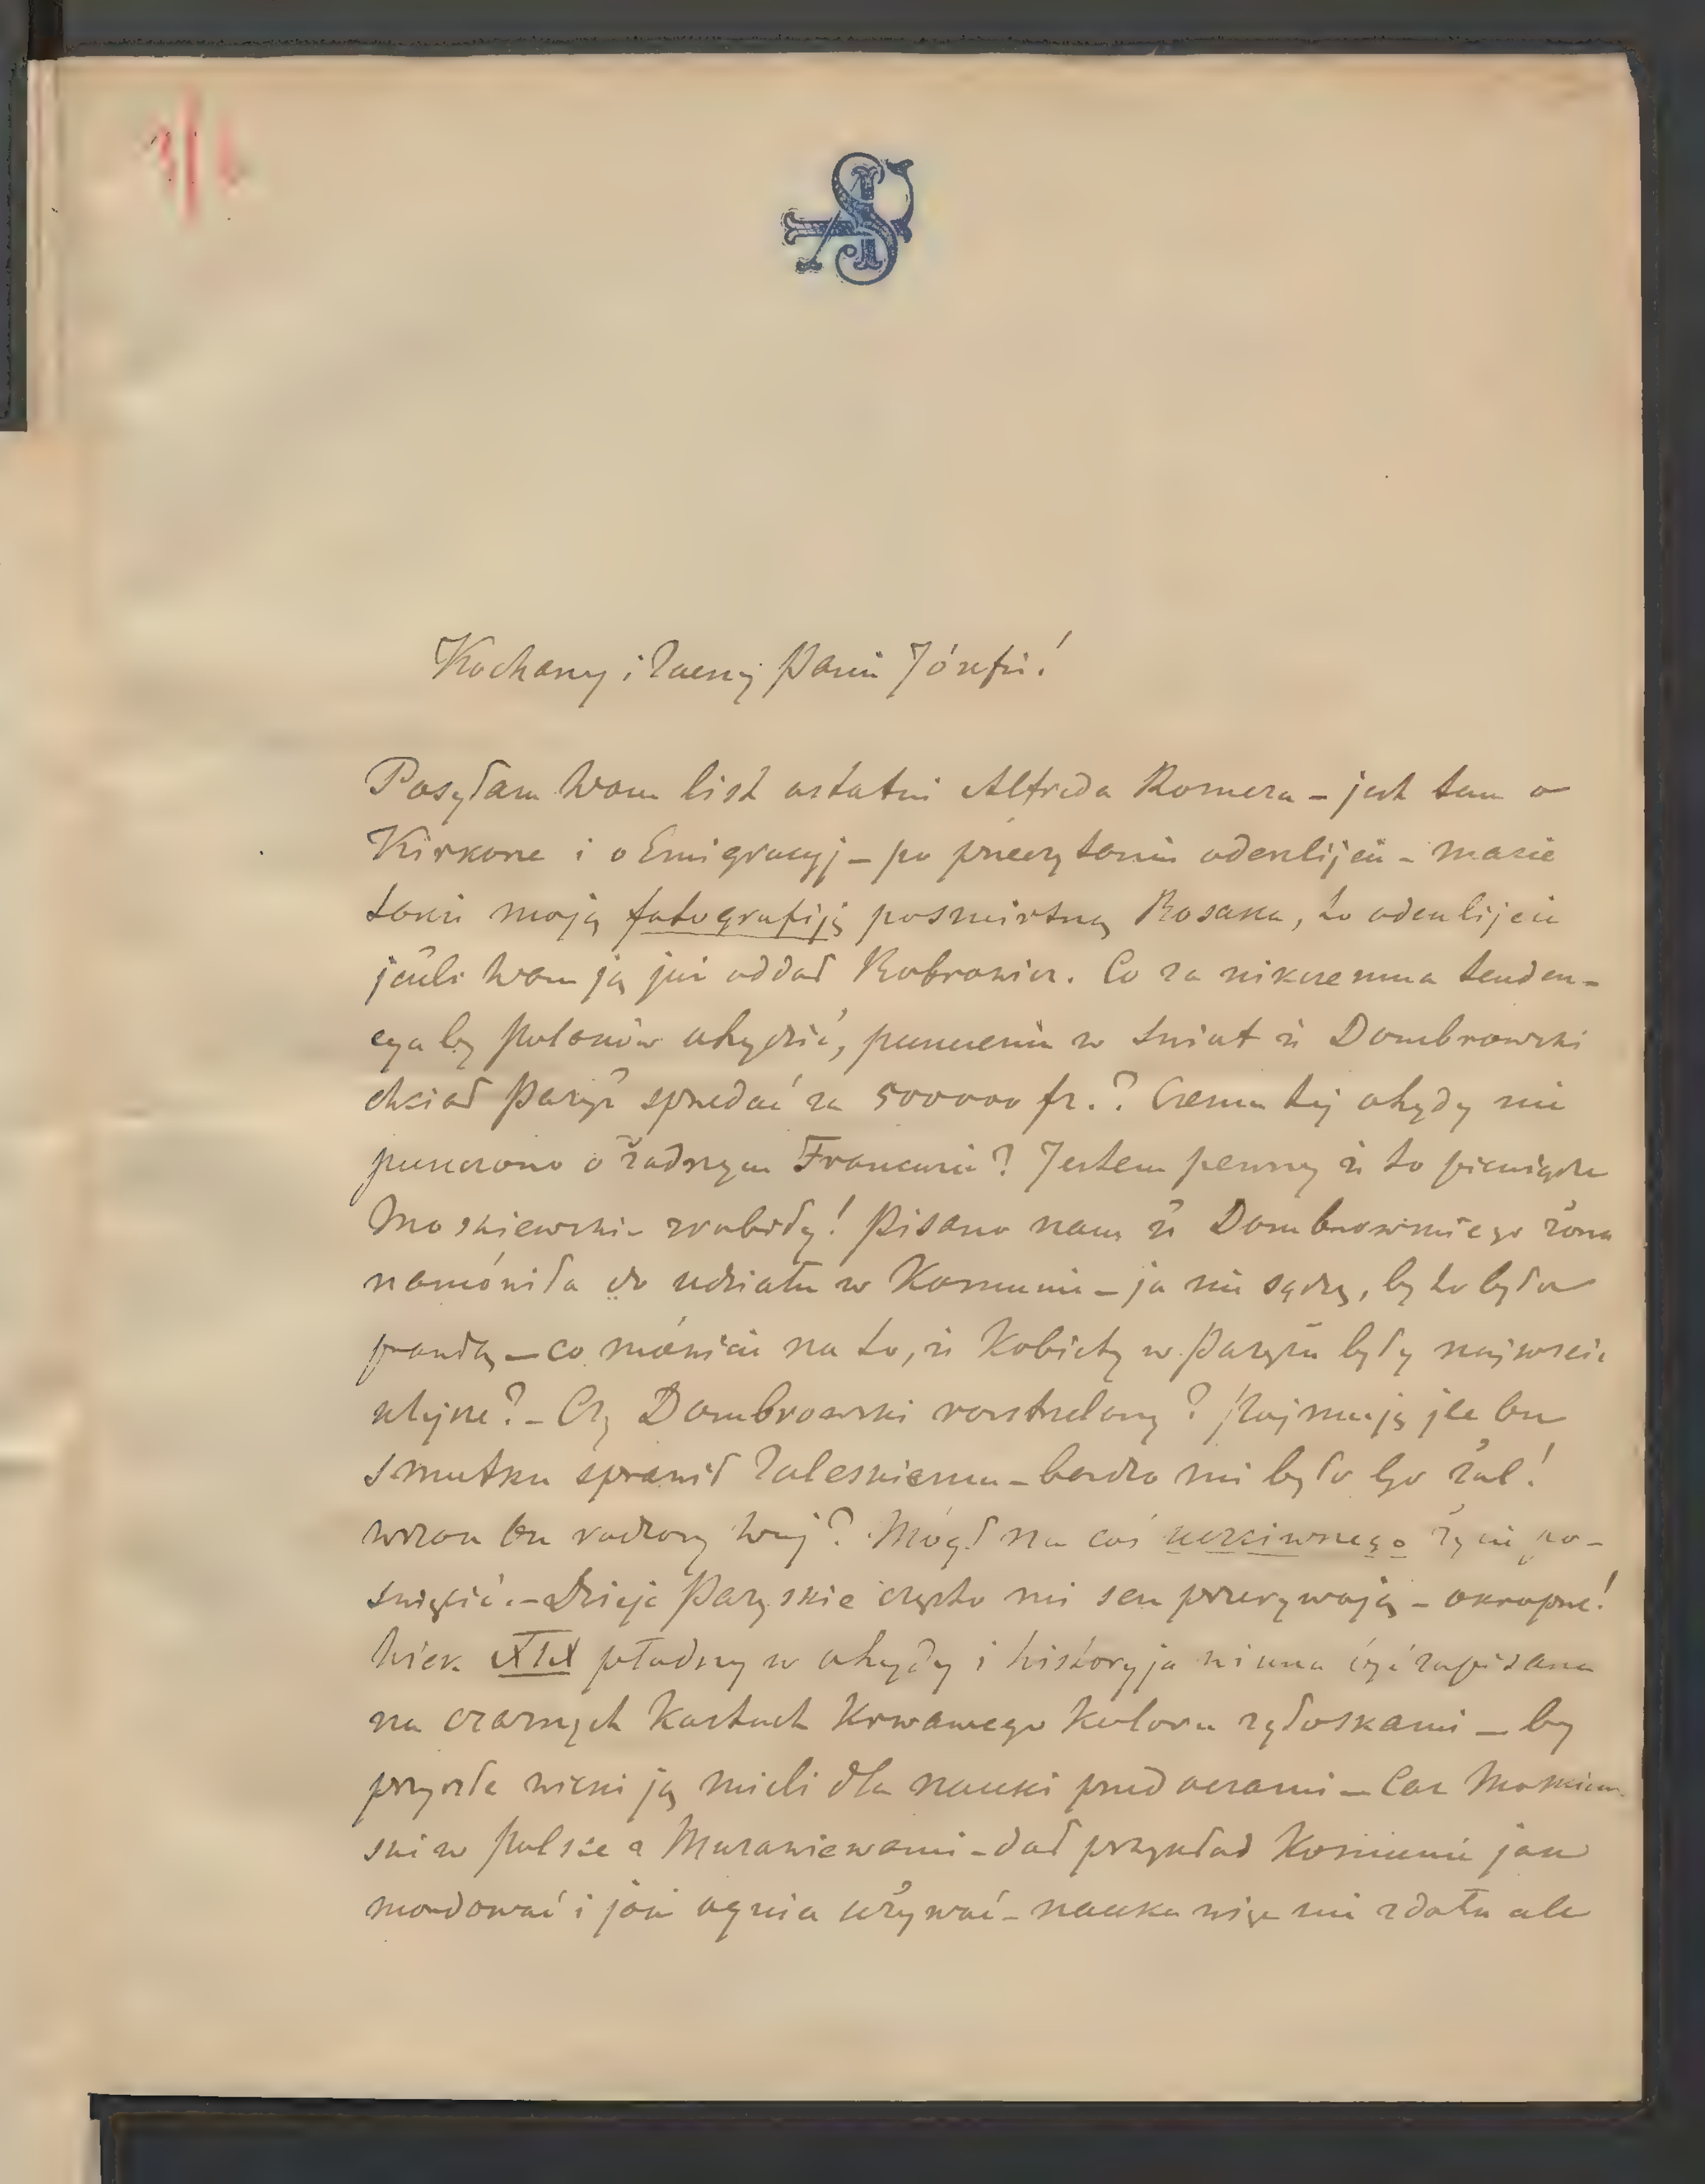 Kochany i Zacny Panie Józefie!
Posyłam Wam list ostatni Alfreda Romera – jest tam o
Kirkorze i o Emigracyj – po przeczytaniu odeszlijcie – macie
także moją fotografiję pośmiertną Bosaka, to odeszlijcie
jeżeli Wam ją już oddał Bobrowicz. Co za nikczemna tenden-
cya by Polaków ohydzić, puszczeniem w świat że Dombrowski
chciał Paryż sprzedać za 500000 fr.? Czemu tej ohydy nie
puszczono o żadnym Francuzie? Jestem pewny że to pieniądze
Moskiewskie zrobiły! Pisano nam że Dombrowskiego żona
namówiła do udziału w Komunie – ja nie sądzę, by to było
prawdą – co mówicie na to, że Kobiety w Paryżu były najwście
klejsze? – Czy Dombrowski rozstrzelany? Pojmuję ile on
smutku sprawił Zaleskiemu – bardzo mi było Go żal!
wszak on rodzony Wuj? Mógł na coś uczciwszego życie po-
święcić. – Dzieje Paryskie często mi sen przerywają – okropne!
Wiek XIX płodny w ohydy i historyja winna być zapisana
na czarnych kartach Krwawego koloru zgłoskami – by
przyszłe wieki ją mieli dla nauki przed oczami – Car Moskiew
ski w Polsce z Murawiewami – dał przykład Komunie jak
mordować i jak ognia używać – nauka więc nie zdała ale